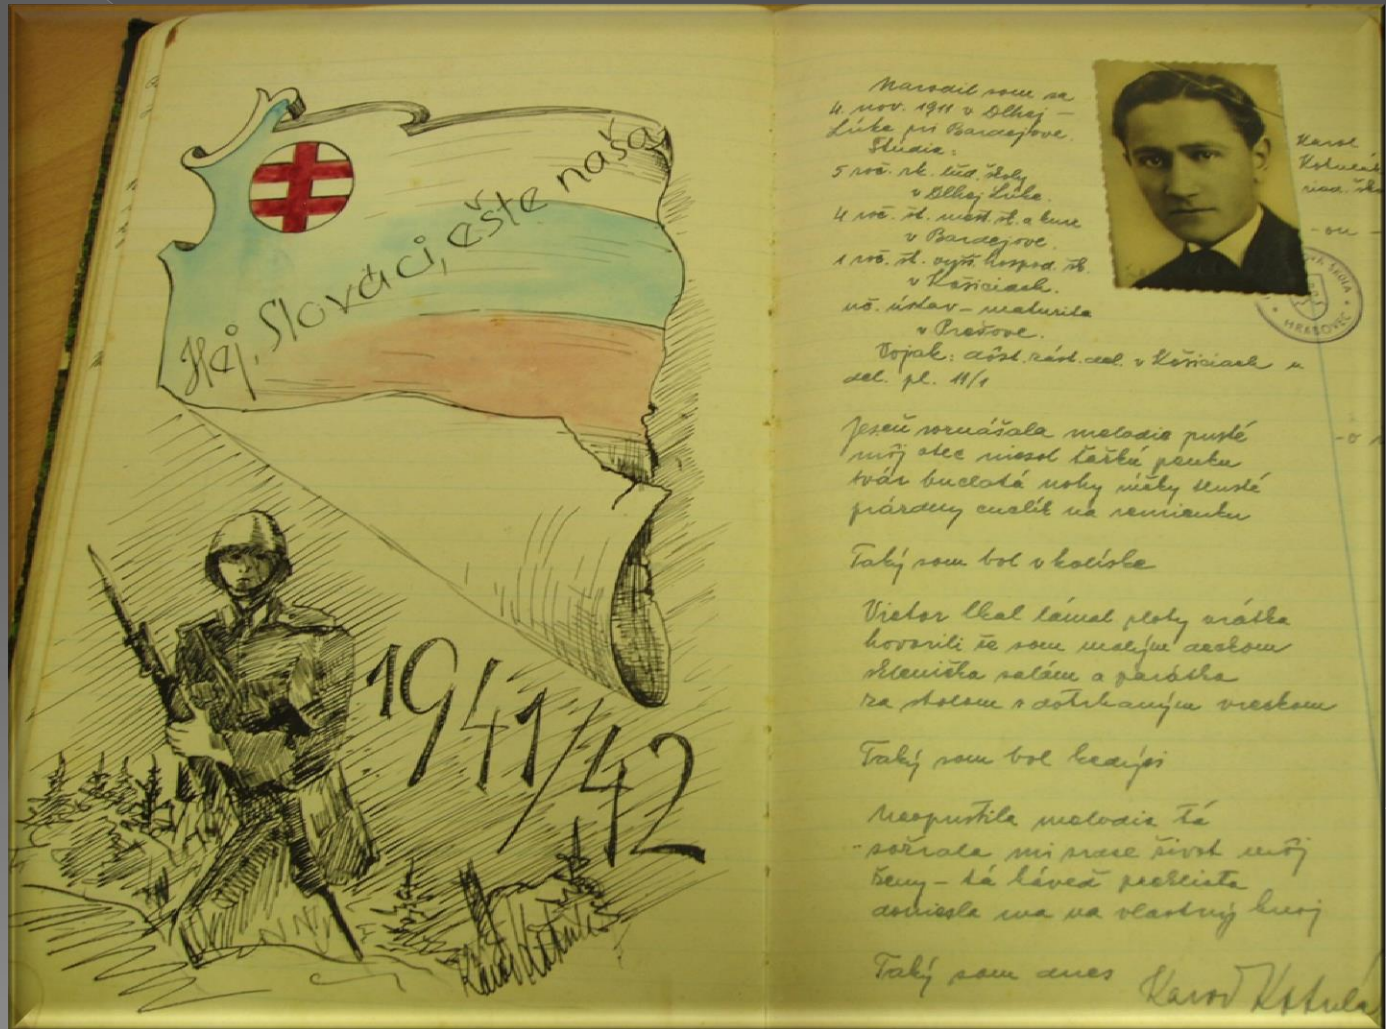 Hej, Slováci, ešte naša
1941/42
Narodil som sa
4. nov. 1911 v Dlhej –
Lúke pri Bardejove.
Štúdia:
5 roč. rk. ľud. školy
v Dlhej Lúke.
4 roč. št. mešt. šk. a kurz
v Bardejove.
1 roč. št. vyšš. hospod. šk.
v Košiciach.
uč. ústav – maturita
v Prešove.
Vojak: dôst. zást. del. v Košiciach a
del. pl. 11/1
Jeseň roznášala melodie pusté
môj otec niesol ťažkú penku
tvár bucľatá nohy rúčky tlusté
prázdny cuclík na remienku
Taký som bol v kolíske
Vietor lkal lámal ploty vrátka
hovorili že som malým deckom
sklenička salám a parátka
za stolom s dotrhaným vreckom
Taký som bol kedysi
Neopustila melodia tá
sožrala mi srdce život môj
ženy – tá láveď prekliata
doniesla ma na vlastný hnoj
Taký som dnes
Karol Kotuľa
Karol
riad.
– on –
ŠKOLA
HRABOVEC